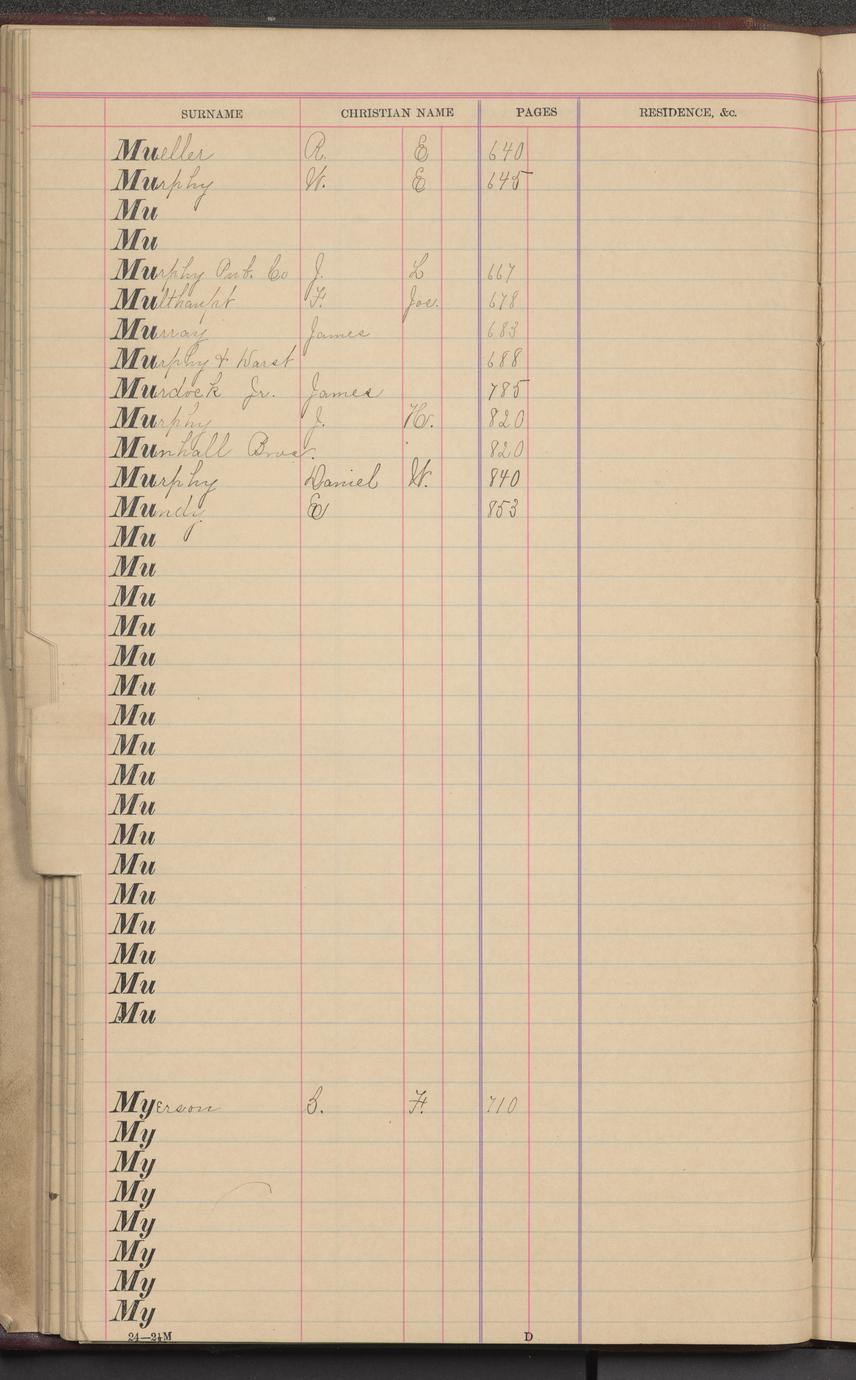 SURNAME CHRISTIAN NAME PAGES RESIDENCE, &c.
Mueller R. E 640
Murphy W. E 645
Mu
Mu
Murphy Pub. Co J. L 667
Multhaupt F. Jos. 678
Murray James 683
Murphy & Warst 688
Murdock Jr. James 785
Murphy J. W. 820
Munhall Bros. 820
Murphy Daniel W. 840
Mundy E 853
Mu
Mu
Mu
Mu
Mu
Mu
Mu
Mu
Mu
Mu
Mu
Mu
Mu
Mu
Mu
Mu
Mu
Myerson S. F. 710
My
My
My
My
My
My
My
24—2½M D